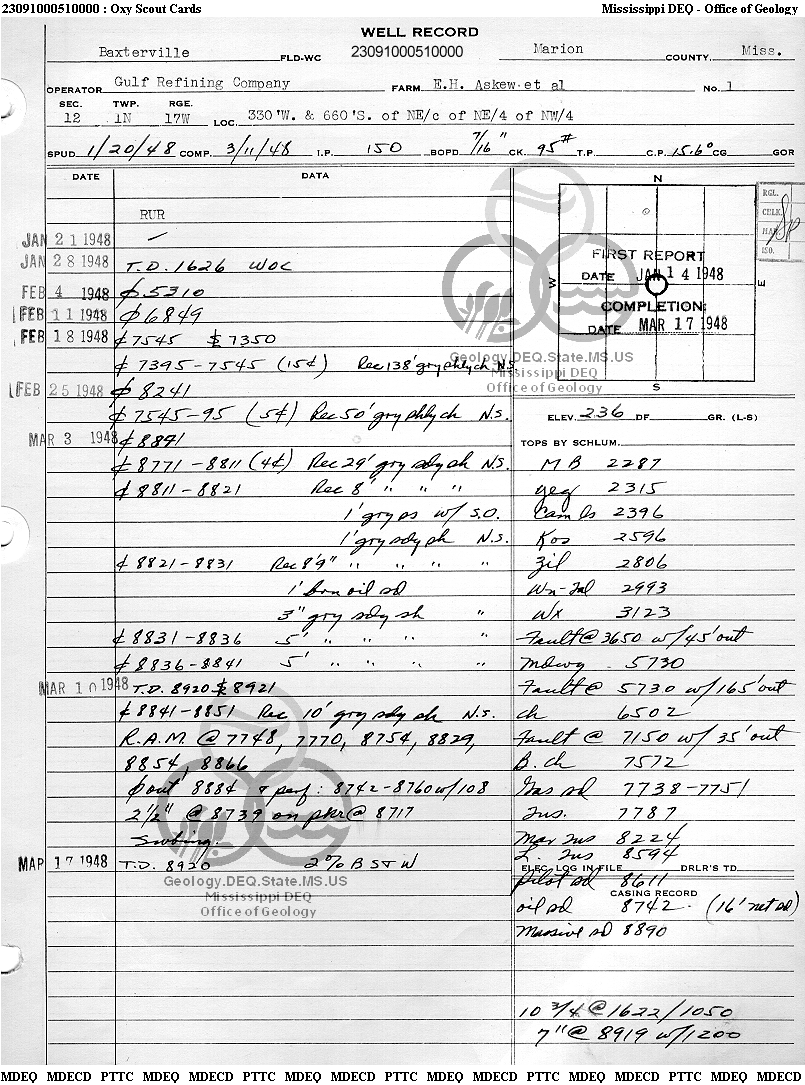 23091000510000 : Oxy Scout Cards Mississippi DEQ - Office of Geology
WELL RECORD
Baxterville FLD-WC 23091000510000 Marion COUNTY Miss.
OPERATOR Gulf Refining Company FARM E.H. Askew et al No. 1
SEC. TWP. RGE.
12 1N 17W LOC. 330'W. & 660'S. of NE/c of NE/4 of NW/4
SPUD 1/20/48 COMP. 3/11/48 I.P. 150 BOPD 7/16" CK 95# T.P. C.P. 15.6° CG GOR
DATE DATA
RUR
JAN 21 1948 —
JAN 28 1948 T.D. 1626 WOC
FEB 4 1948 ₵ 5310
FEB 11 1948 ₵ 6849
FEB 18 1948 ₵ 7545 $ 7350
₵ 7395-7545 (15₵) Rec 138' gry shly ch N.S.
FEB 25 1948 ₵ 8241
₵ 7545-95 (5₵) Rec 50' gry shly ch N.S.
MAR 3 1948 ₵ 8841
₵ 8771-8811 (4₵) Rec 29' gry sdy sh N.S.
₵ 8811-8821 Rec 8' " " "
1' gry os w/ S.O.
1' gry sdy sh N.S.
₵ 8821-8831 Rec 8'9" " " " "
1' brn oil sd
3" gry sdy sh "
₵ 8831-8836 5' " " " "
₵ 8836-8841 5' " " " "
MAR 10 1948 T.D. 8920 $ 8921
₵ 8841-8851 Rec 10' gry sdy sh N.S.
R.A.M. @ 7748, 7770, 8754, 8829,
8854, 8866
₵ out 8884 & perf: 8742-8760 w/108
2½" @ 8739 on pkr @ 8717
Swbing.
MAR 17 1948 T.D. 8920 2% BS+W
N
W
E
S
FIRST REPORT
DATE JAN 14 1948
COMPLETION:
DATE MAR 17 1948
RGL.
CELK.
HAR
ISO.
Geology.DEQ.State.MS.US
Mississippi DEQ
Office of Geology
ELEV. 236 DF GR. (L-S)
TOPS BY SCHLUM.
M B 2287
yeg 2315
Cam ls 2396
Kos 2596
Zil 2806
Wn-Tal 2993
Wx 3123
Fault @ 3650 w/45' out
Mdwy 5730
Fault @ 5730 w/165' out
ch 6502
Fault @ 7150 w/35' out
B. ch 7572
Gas sd 7738-7751
Tus. 7787
Mar Tus 8224
L. Tus 8594
ELEC. LOG IN FILE DRLR'S TD
Pilot sd 8611
CASING RECORD
oil sd 8742 (16' net sd)
Massive sd 8890
10 3/4 @ 1622/1050
7" @ 8919 w/1200
Geology.DEQ.State.MS.US
Mississippi DEQ
Office of Geology
MDEQ MDECD PTTC MDEQ MDECD PTTC MDEQ MDECD PTTC MDEQ MDECD PTTC MDEQ MDECD PTTC MDEQ MDECD